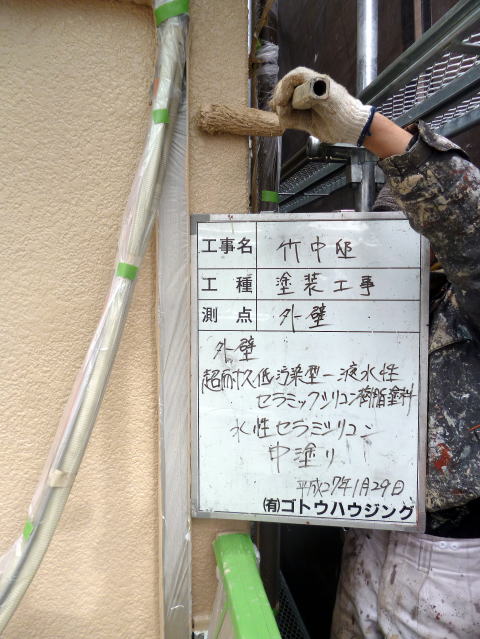 工事名 竹中邸
工種 塗装工事
測点 外壁
外壁
超耐久低汚染型一液水性
セラミックシリコン樹脂塗料
水性セラミシリコン
中塗り
平成27年1月29日
(有)ゴトウハウジング